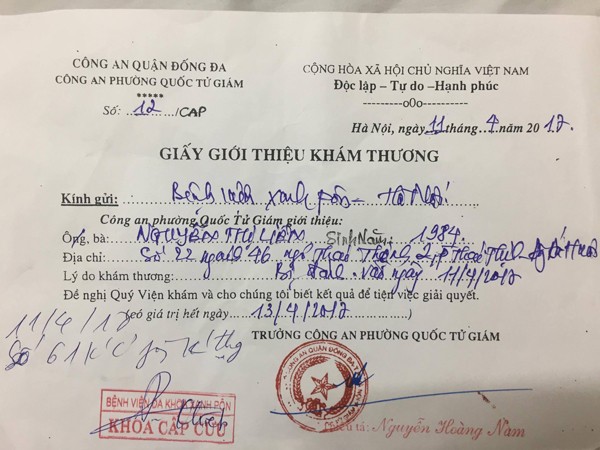 CÔNG AN QUẬN ĐỐNG ĐA
CÔNG AN PHƯỜNG QUỐC TỬ GIÁM
*****
Số: 12 /CAP
CỘNG HÒA XÃ HỘI CHỦ NGHĨA VIỆT NAM
Độc lập – Tự do –Hạnh phúc
---------o0o---------
Hà Nội, ngày 11 tháng 4 năm 2017.
GIẤY GIỚI THIỆU KHÁM THƯƠNG
Kính gửi: Bệnh viện xanh pôn – Hà Nội
Công an phường Quốc Tử Giám giới thiệu:
Ông, bà: NGUYỄN THỊ Sinh Năm: 1984
Địa chỉ: Số 22 ngách 46 ngõ Thái Thịnh 2, P Thái Thịnh
Lý do khám thương: Bị đánh vào ngày 11/4/2017
Đề nghị Quý Viện khám và cho chúng tôi biết kết quả để tiện việc giải quyết.
(có giá trị hết ngày 13/4/2017)
11/4/17
Số 61
TRƯỞNG CÔNG AN PHƯỜNG QUỐC TỬ GIÁM
CÔNG AN QUẬN ĐỐNG ĐA
BỆNH VIỆN ĐA KHOA XANH PÔN
KHOA CẤP CỨU
Thiếu tá: Nguyễn Hoàng Nam